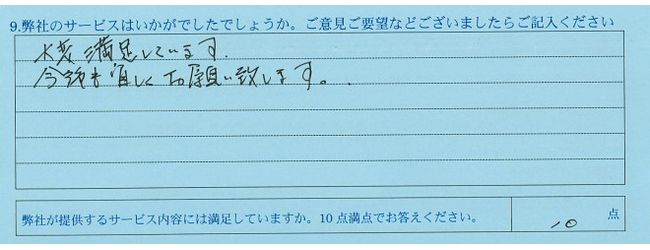 9.弊社のサービスはいかがでしたでしょうか。ご意見ご要望などございましたらご記入ください
大変満足しています.
今後も宜しくお願い致します。
弊社が提供するサービス内容には満足していますか。10点満点でお答えください。
10 点